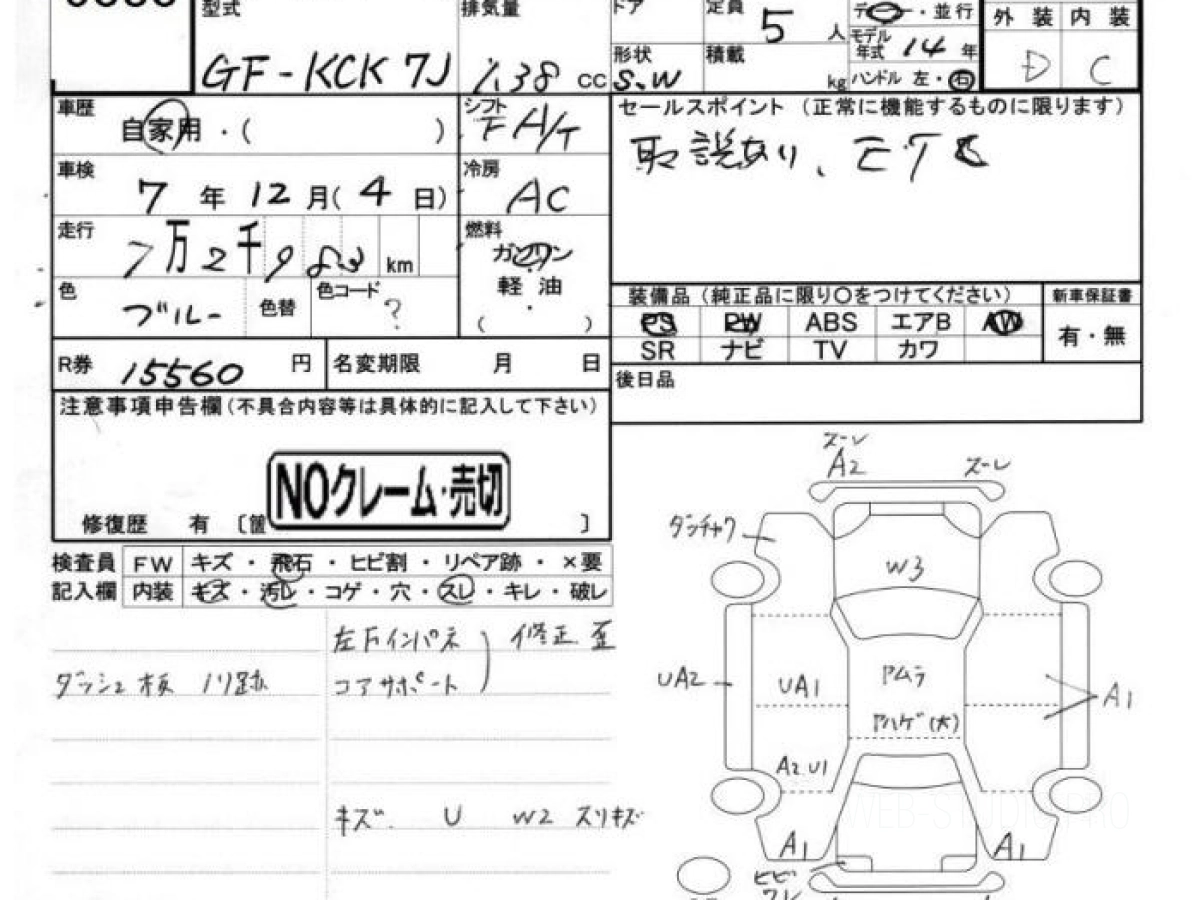 型式 排気量 ドア 定員 5 人 ・並行
モデル年式 14 年
外装 内装
GF-KCK7J 1.38 cc
形状 S.W 積載 kg ハンドル 左・右
D C
車歴 自家用・( )
シフト FA/T
セールスポイント(正常に機能するものに限ります)
取説あり、ETC
車検 7 年 12 月( 4 日)
冷房 AC
走行 7万2千983 km
燃料 ガソリン
軽油
・
( )
色 ブルー 色替 色コード ?
装備品(純正品に限り○をつけてください) 新車保証書
PS PW ABS エアB AW
有・無
SR ナビ TV カワ
R券 15560 円 名変期限 月 日
後日品
注意事項申告欄(不具合内容等は具体的に記入して下さい)
NOクレーム・売切
修復歴 有 〔箇 〕
検査員 FW キズ・飛石・ヒビ割・リペア跡・×要
記入欄 内装 キズ・汚レ・コゲ・穴・スレ・キレ・破レ
左Fインパネ 修正 歪
コアサポート
ダッシュ板 ノリ跡
キズ. U W2 スリキズ
スーレ
A2 スーレ
タッチャク
W3
UA2 UA1 アムラ A1
Aハゲ(大)
A2.U1
WEB-STUDIO.PRO
A1 A1
ヒビ
ワレ